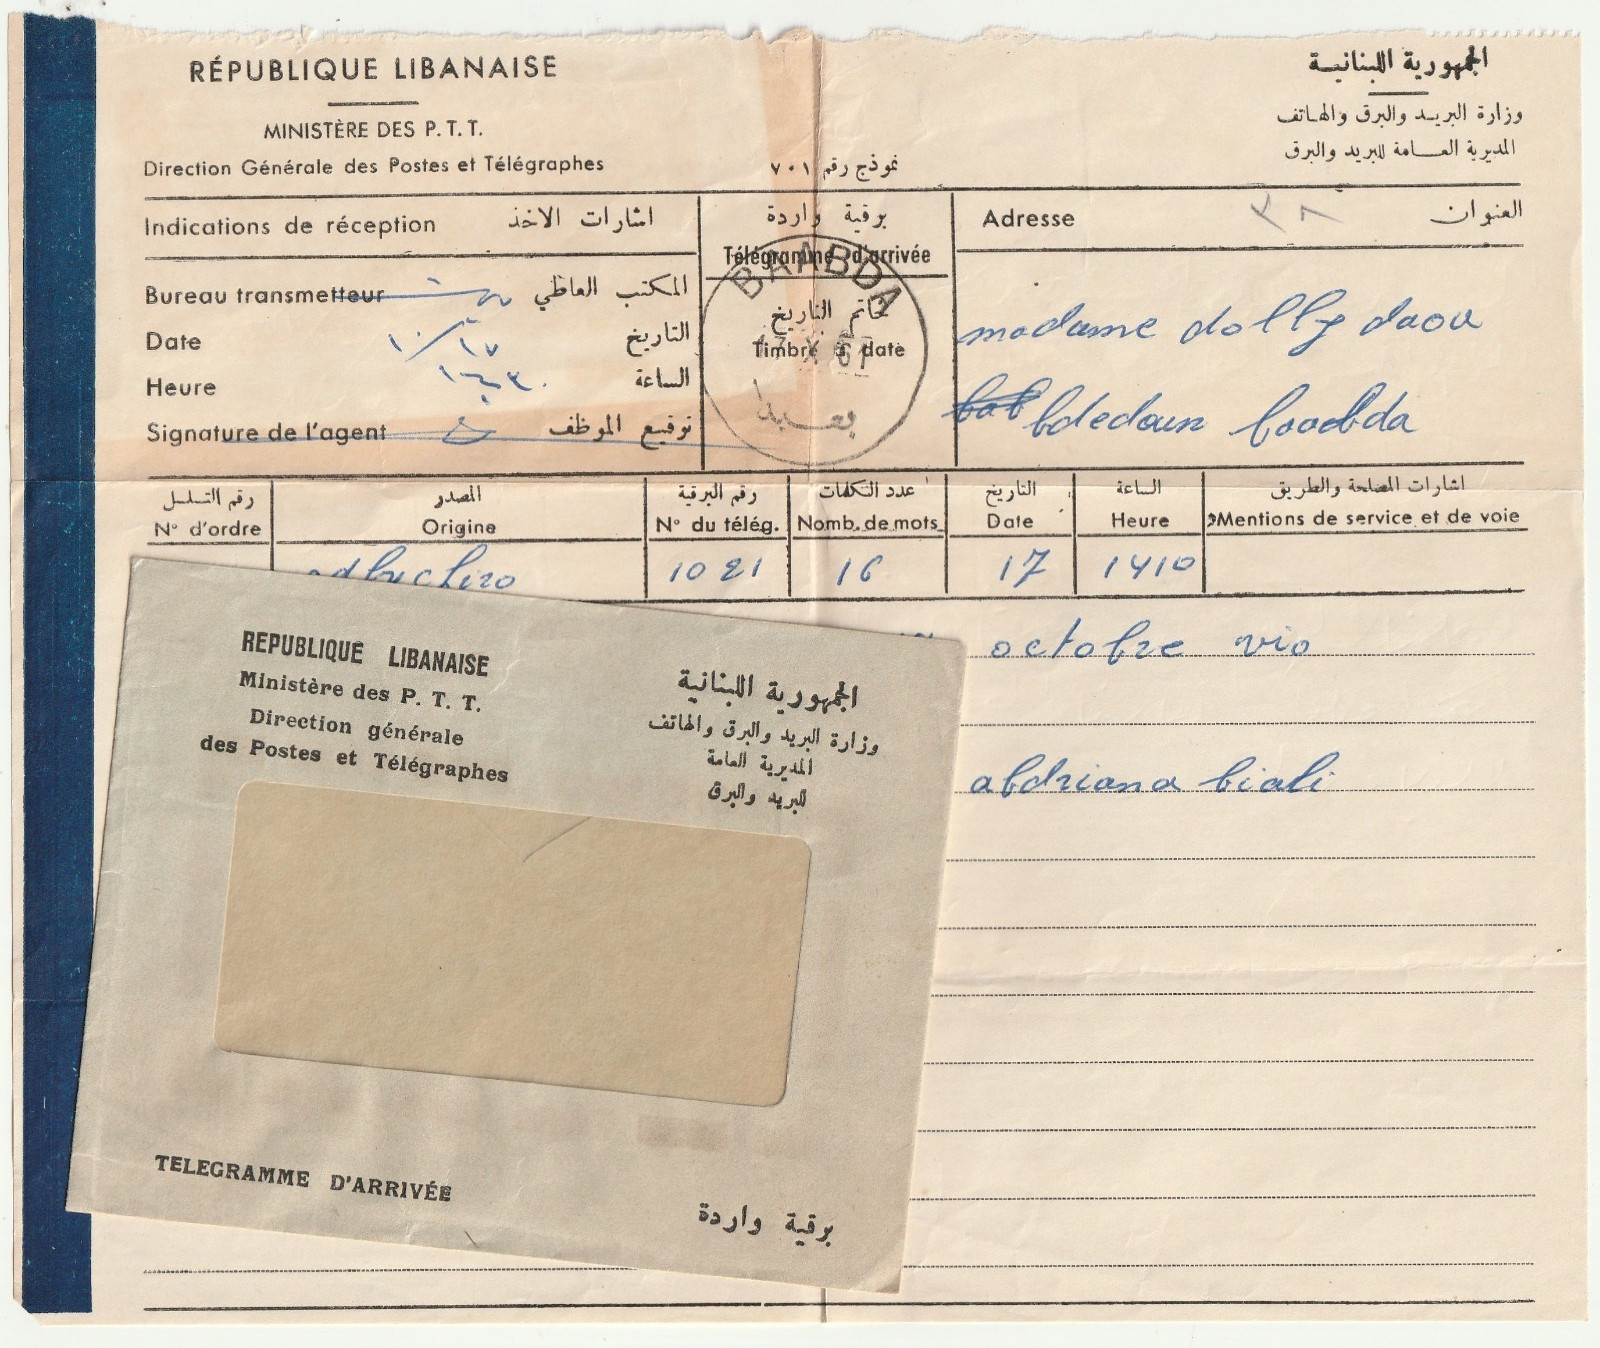 RÉPUBLIQUE LIBANAISE
MINISTÈRE DES P. T. T.
Direction Générale des Postes et Télégraphes
الجمهورية اللبنانية
وزارة البريد والبرق والهاتف
المديرية العامة للبريد والبرق
نموذج رقم ٧٠١
Indications de réception اشارات الاخذ
برقية واردة
Télégramme d'arrivée
Adresse ٣٨ العنوان
Bureau transmetteur المكتب العاطي
Date ١٧/١٠ التاريخ
Heure الساعة
Signature de l'agent توقيع الموظف
خاتم التاريخ
Timbre à date
BAABDA
بعبدا
madame dolly daou
bdedoun baabda
رقم التسلسل المصدر رقم البرقية عدد الكلمات التاريخ الساعة اشارات المصلحة والطريق
N° d'ordre Origine N° du télég. Nomb. de mots Date Heure Mentions de service et de voie
1021 16 17 1410
octobre via
abdriana biali
REPUBLIQUE LIBANAISE
Ministère des P. T. T.
Direction générale
des Postes et Télégraphes
الجمهورية اللبنانية
وزارة البريد والبرق والهاتف
المديرية العامة
للبريد والبرق
TELEGRAMME D'ARRIVÉE
برقية واردة